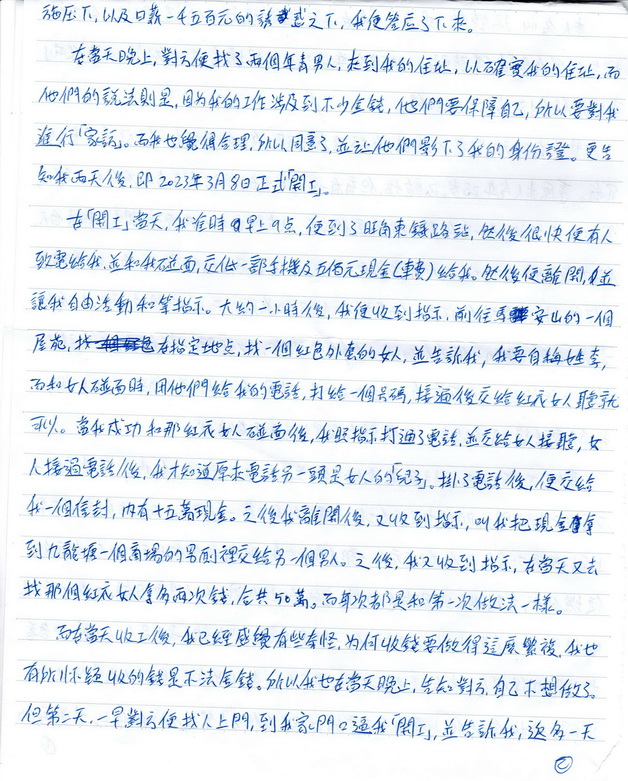 施压下,以及日薪一千五百元的誘惑之下,我便答应了下來。
在當天晚上,對方便找了兩個年青男人,走到我的住址,以確實我的住址,而
他們的說法則是,因为我的工作涉及到不少金錢,他們要保障自己,所以要對我
進行「家訪」。而我也覺得合理,所以同意了,並让他們影下了我的身份證。更告
知我兩天後,即2023年3月8日正式「開工」。
在「開工」當天,我准時早上9点,便到了旺角東鐵路站,然後很快便有人
致電給我,並和我碰面,交低一部手機及五佰元現金(車費)給我。然後便離開,並
讓我自由活動和等指示。大約一小時後,我便收到指示,前往馬安山的一個
屋苑,在指定地点,找一個紅色外套的女人,並告訴我,我要自稱姓李,
而和女人碰面時,用他們給我的電話,打給一個号碼,接通後交給紅衣女人聽就
可以。當我成功和那紅衣女人碰面後,我照指示打通了電話,並交給女人接聽,女
人接過電話後,我才知道原來電話另一頭是女人的「兒子」。掛了電話後,便交給
我一個信封,内有十五萬現金。之後我離開後,又收到指示,叫我把現金拿
到九龍塘一個商場的男厕裡交給另一個男人。之後,我又收到指示,在當天又去
找那個紅衣女人拿多兩次錢,合共50萬。而每次都是和第一次做法一樣。
而在當天收工後,我已經感覺有些奇怪,为何收錢要做得這麼繁複,我也
有所怀疑收的錢是不法金錢。所以我也在當天晚上,告知對方,自己不想做了。
但第二天,一早對方便找人上門,到我家門口逼我「開工」,並告訴我,做多一天
②